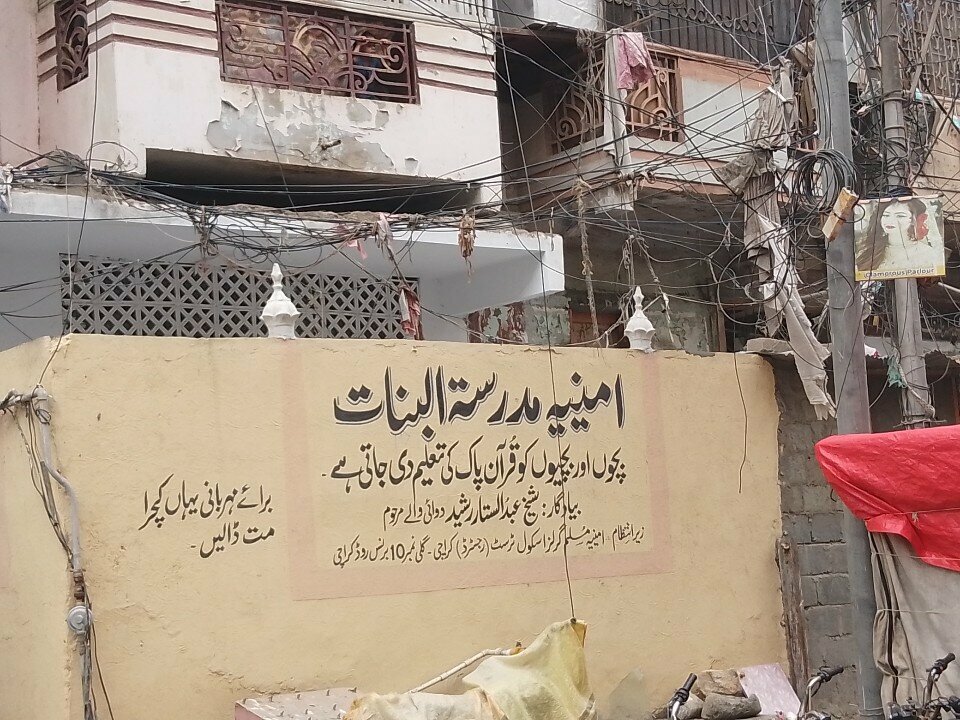 امینیہ مدرستہ البنات
بچوں اور بچیوں کو قُرآن پاک کی تعلیم دی جاتی ہے۔
بیادگار: شیخ عبدُالستار رشید دوائی والے مرحوم
زیر انتظام ۔ امینیہ مُسلم گرلز اسکول ٹرسٹ (رجسٹرڈ) کراچی ۔ گلی نمبر 10 برنس روڈ کراچی
برائے مہربانی یہاں کچرا
مت ڈالیں۔
Glamorous Parlour